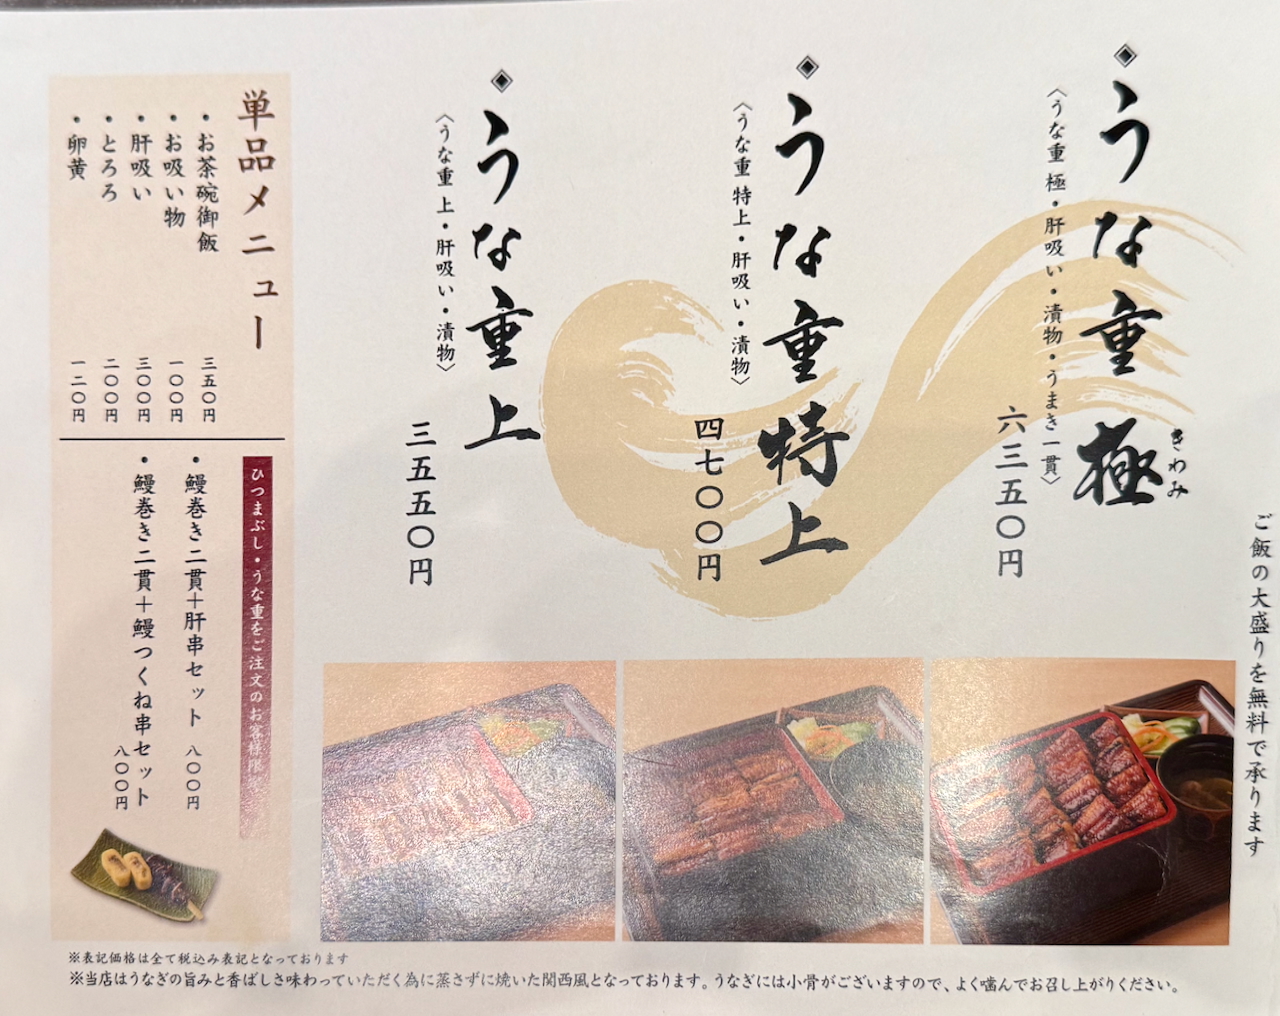 ご飯の大盛りを無料で承ります
うな重 極
きわみ
〈うな重 極・肝吸い・漬物・うまき一貫〉
六三五〇円
うな重 特上
〈うな重 特上・肝吸い・漬物〉
四七〇〇円
うな重 上
〈うな重 上・肝吸い・漬物〉
三五五〇円
単品メニュー
・お茶碗御飯 三五〇円
・お吸い物 一〇〇円
・肝吸い 三〇〇円
・とろろ 二〇〇円
・卵黄 一二〇円
ひつまぶし・うな重をご注文のお客様限
・鰻巻き二貫＋肝串セット 八〇〇円
・鰻巻き二貫＋鰻つくね串セット 八〇〇円
※表記価格は全て税込み表記となっております
※当店はうなぎの旨みと香ばしさ味わっていただく為に蒸さずに焼いた関西風となっております。うなぎには小骨がございますので、よく噛んでお召し上がりください。